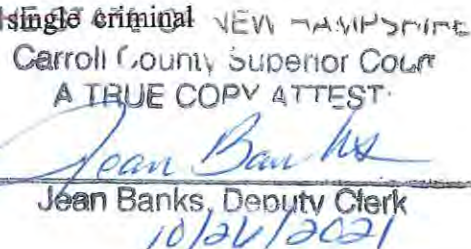 single criminal NEW HAMPSHIRE
Carroll County Superior Court
A TRUE COPY ATTEST:
Jean Banks
Jean Banks, Deputy Clerk
10/26/2021